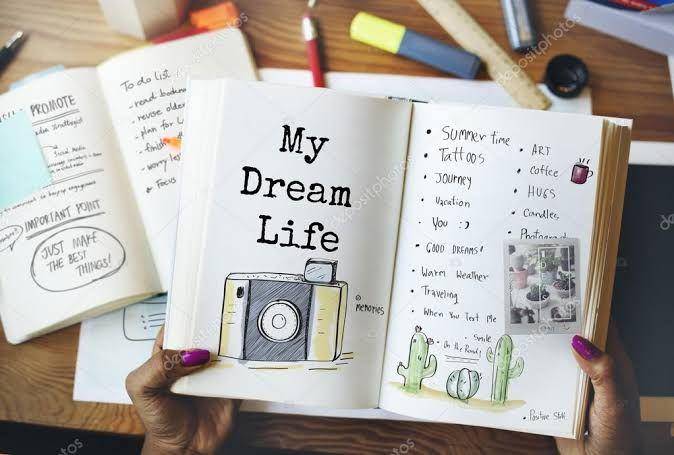 PROMOTE
Social Media
IMPORTANT POINT
JUST MAKE
THE BEST
THINGS!
To do list
- read
- reuse older
- plan for
- finish
- worry less
- Focus
My
Dream
Life
memories
• Summer time
• Tattoos
• Journey
• Vacation
• You :)
• GOOD DREAMS!
• Warm Weather
• Traveling
• When You Text Me
• Smile
• On the Road!
• ART
• Coffee
• HUGS
• Candles
• Positive Stuff
depositphotos
depositphotos
depositphotos